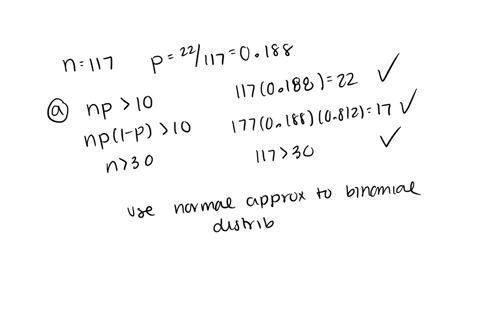 n=117 p=22/117=0.188
ⓐ np >10 117(0.188)=22 ✓
np(1-p) >10 177(0.188)(0.812)=17 ✓
n>30 117>30 ✓
use normal approx to binomial
distrib